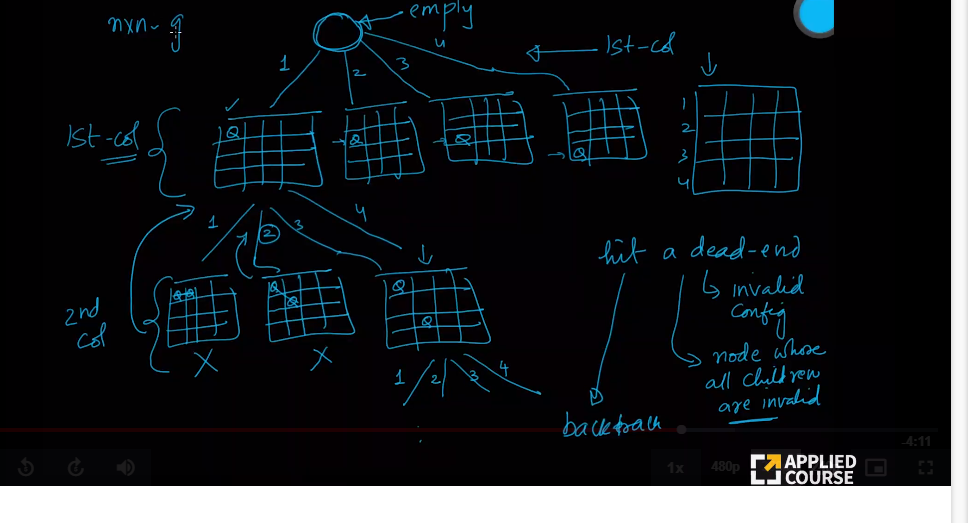 nxn - g
empty
1 2 3 4
1st-col
1st-col
Q
Q
Q
Q
1
2
3
4
1 2 3 4
2nd
col
Q Q
Q
Q
Q
Q
X
X
1 2 3 4
hit a dead-end
invalid
config
node whose
all children
are invalid
backtrack
-4:11
1x
480p
APPLIED
COURSE